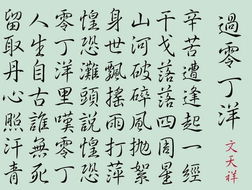 過零丁洋
文天祥
辛苦遭逢起一經
干戈落落四周星
山河破碎風拋絮
身世飄搖雨打萍
惶恐灘頭說惶恐
零丁洋里嘆零丁
人生自古誰無死
留取丹心照汗青